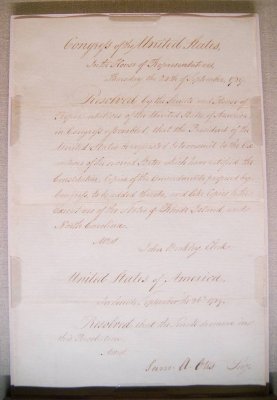 Congress of the United States,
In the House of Representatives,
Thursday the 24th of September, 1789.
Resolved by the Senate and House of
Representatives of the United States of America
in Congress assembled, that the President of the
United States be requested to transmit to the Exe-
cutives of the several States which have ratified the
Constitution, Copies of the Amendments proposed by
Congress, to be added thereto, and like Copies to the
Executives of the States of Rhode Island and
North Carolina.
Attest
John Beckley, Clerk
United States of America.
In Senate, September 26th 1789.
Resolved that the Senate concur in
this Resolution.
Attest
Sam. A. Otis Secy.